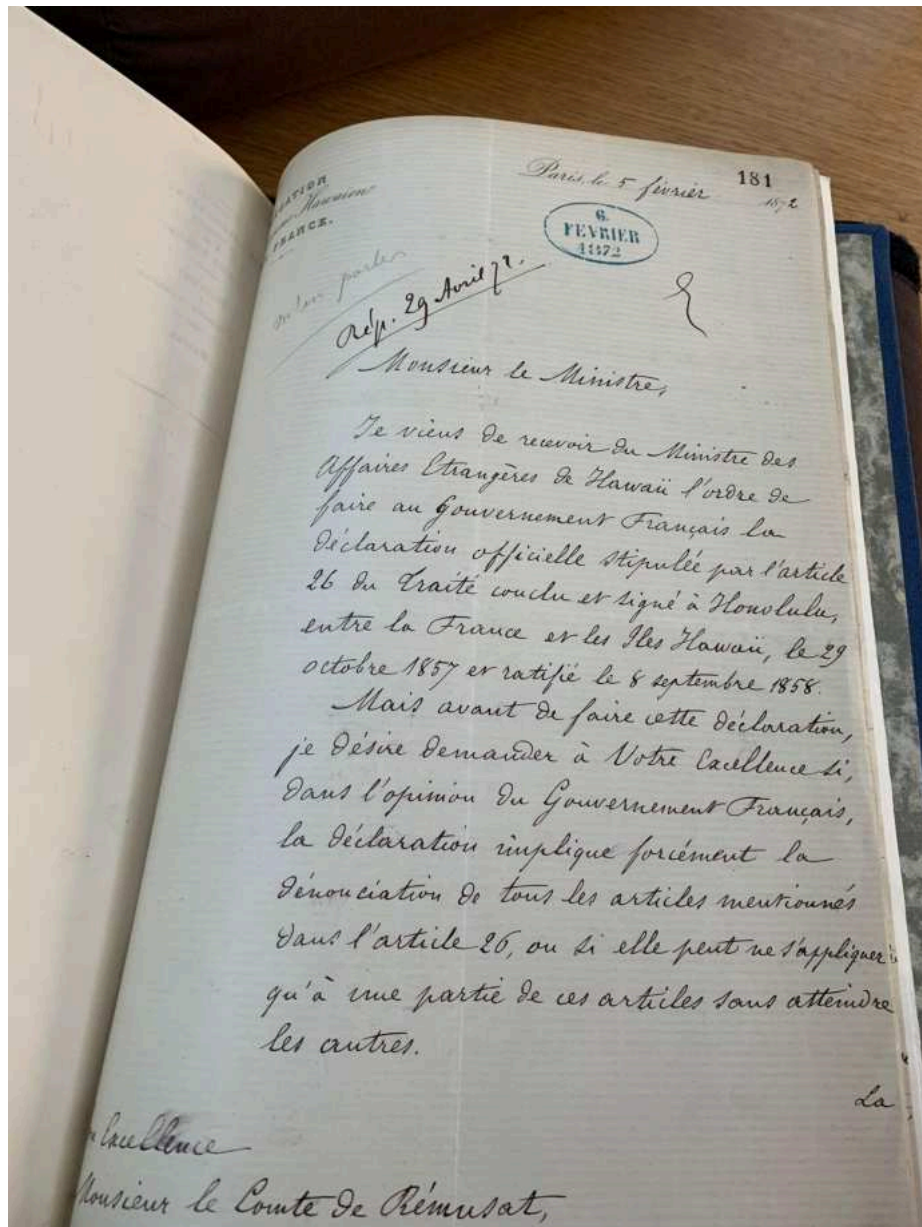 Paris, le 5 février 1872
181
6.
FEVRIER
1872
Hawaiien
m'en parler
Rép. 29 Avril 72.
Monsieur le Ministre,
Je viens de recevoir du Ministre des
Affaires Etrangères de Hawaii l'ordre de
faire au Gouvernement Français la
déclaration officielle stipulée par l'article
26 du Traité conclu et signé à Honolulu,
entre la France et les Iles Hawaii, le 29
octobre 1857 et ratifié le 8 septembre 1858.
Mais avant de faire cette déclaration,
je désire demander à Votre Excellence si,
dans l'opinion du Gouvernement Français,
la déclaration implique forcément la
dénonciation de tous les articles mentionnés
dans l'article 26, ou si elle peut ne s'appliquer
qu'à une partie de ces articles sans atteindre
les autres.
La
Excellence
Monsieur le Comte de Rémusat,